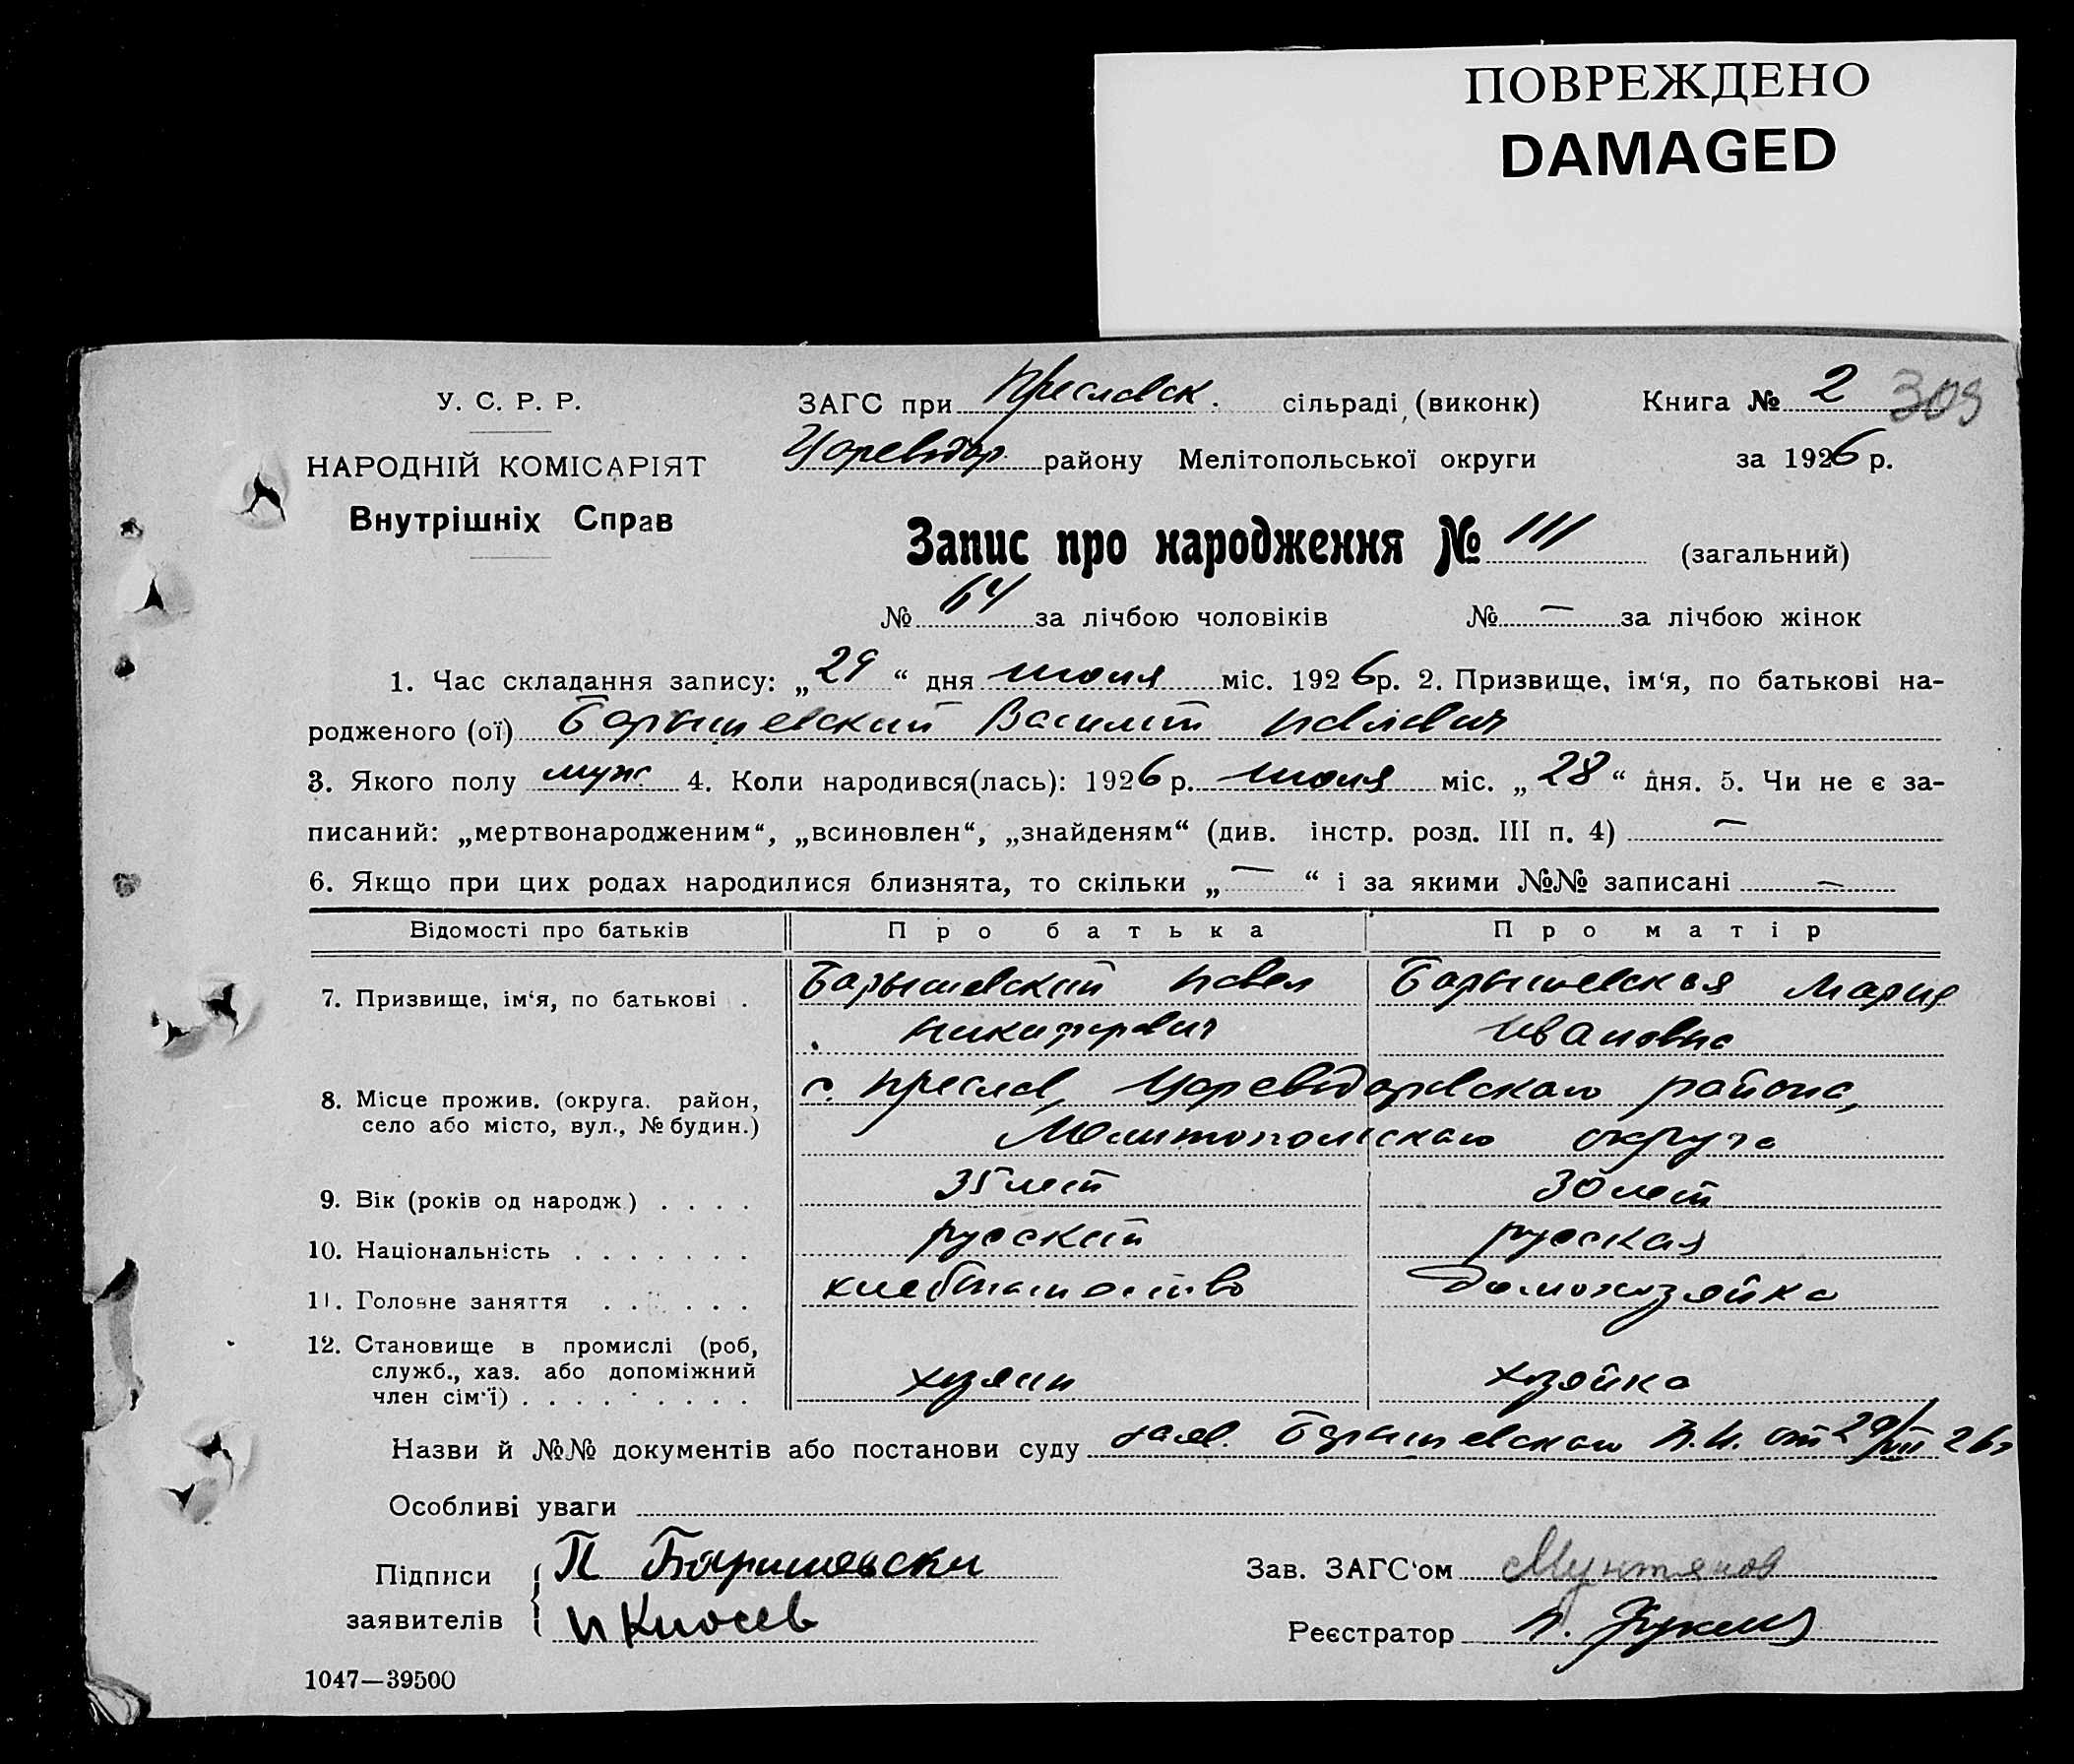 ПОВРЕЖДЕНО
DAMAGED
У. С. Р. Р.
НАРОДНІЙ КОМІСАРІЯТ
Внутрішніх Справ
ЗАГС при Преславск. сільраді (виконк) Книга № 2 309
Царевдар. району Мелітопольської округи за 1926 р.
Запис про народження № 111 (загальний)
№ 64 за лічбою чоловіків № — за лічбою жінок
1. Час складання запису: „29“ дня июля міс. 1926 р. 2. Призвище, ім‘я, по батькові на-
родженого (ої) Барышевский Василий Павлович
3. Якого полу муж. 4. Коли народився(лась): 1926 р. июля міс. „28“ дня. 5. Чи не є за-
писаний: „мертвонародженим“, „всиновлен“, „знайденям“ (див. інстр. розд. III п. 4) —
6. Якщо при цих родах народилися близнята, то скільки „—“ і за якими №№ записані —
Відомості про батьків Про батька Про матір
7. Призвище, ім‘я, по батькові . Барышевский Павел Барышевская Мария
Никифорович Ивановна
8. Місце прожив. (округа, район, село або місто, вул., № будин.) с. Преслав, Царевдаровского района,
Мелитопольского округа
9. Вік (років од народж) . . . . 35 лет 30 лет
10. Національність . . . . . . . русский русская
11. Головне заняття . . . . . . хлебопашество домохозяйка
12. Становище в промислі (роб,
служб., хаз. або допоміжний
член сім‘ї) . . . . . . . . хозяин хозяйка
Назви й №№ документів або постанови суду заяв. Барышевского П.Н. от 29/VII 26г
Особливі уваги
Підписи заявителів П Баришевски
И Киосев
Зав. ЗАГС‘ом Мунтянов
Реєстратор П.
1047—39500